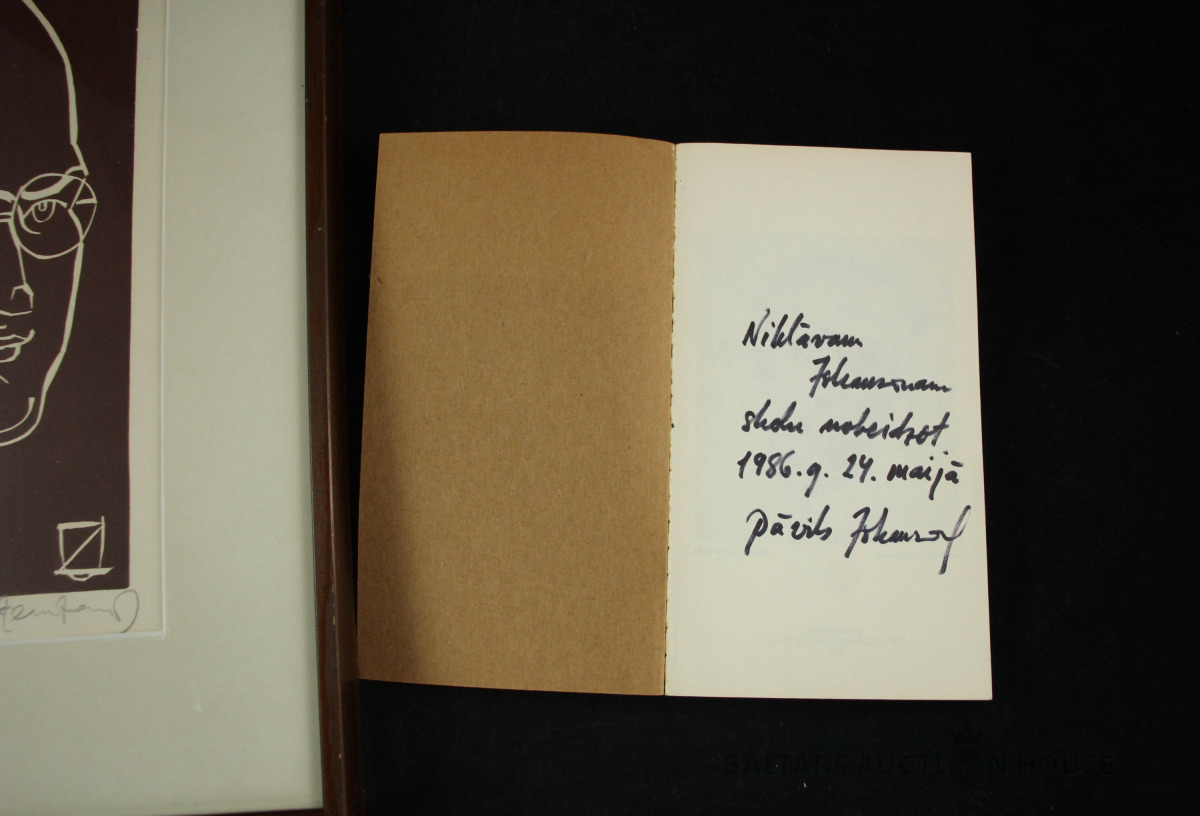 Niklāvam
Johansonam
skolu nobeidzot
1986. g. 24. maijā
Pāvils Johansons
BALTARS AUCTION HOUSE